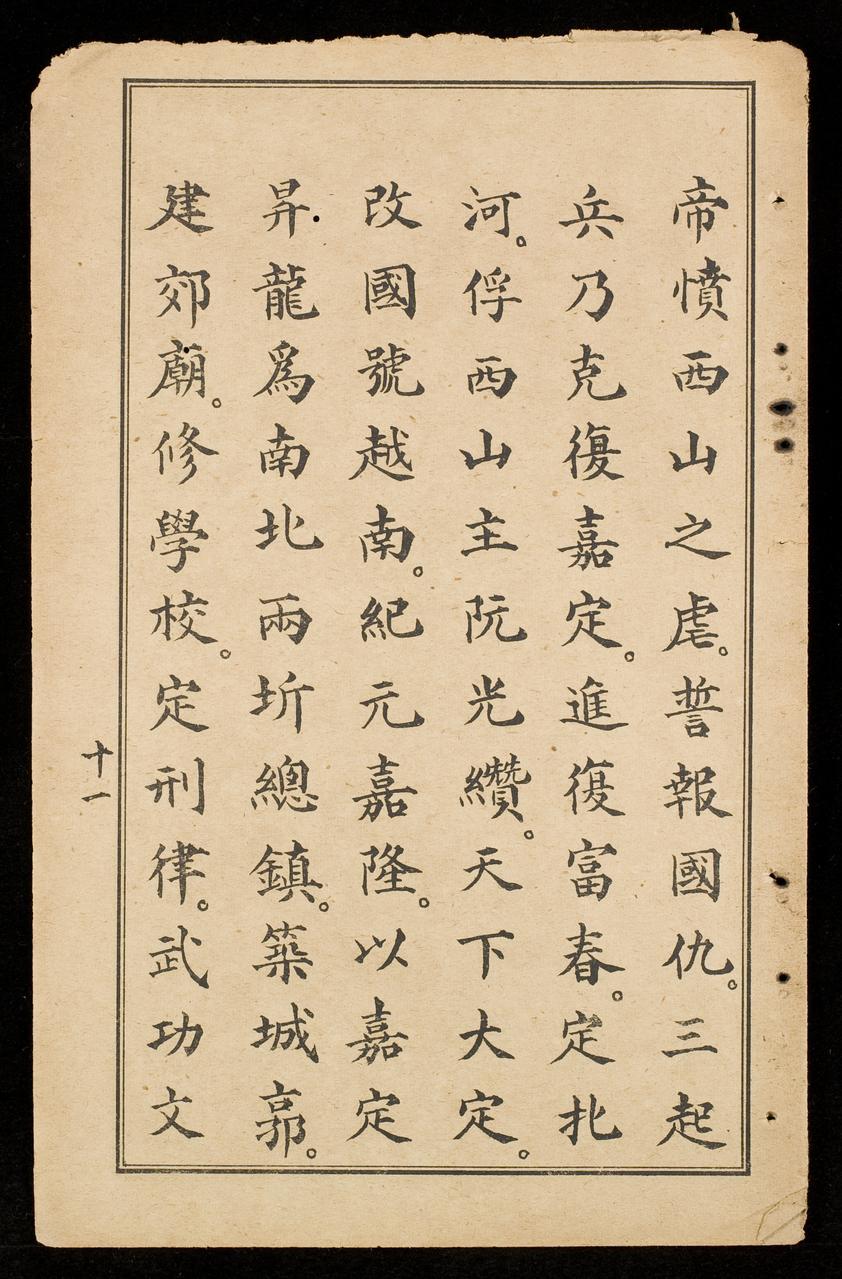 帝憤西山之虐。誓報國仇。三起
兵乃克復嘉定。進復富春。定北
河。俘西山主阮光纘。天下大定。
改國號越南。紀元嘉隆。以嘉定
昇龍爲南北兩圻總鎮。築城郭。
建郊廟。修學校。定刑律。武功文
十一